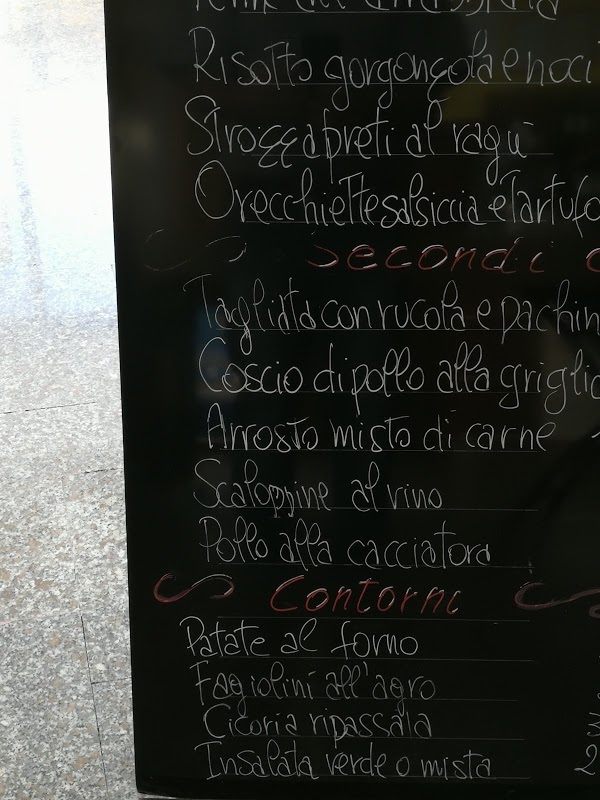 Risotto gorgonzola e noci
Strozzapreti al ragù
Orecchiette salsiccia e Tartufo
Secondi
Tagliata con rucola e pachin
Coscio di pollo alla griglia
Arrosto misto di carne
Scaloppine al vino
Pollo alla cacciatora
Contorni
Patate al forno
Fagiolini all'agro
Cicoria ripassata 3
Insalata verde o mista 2